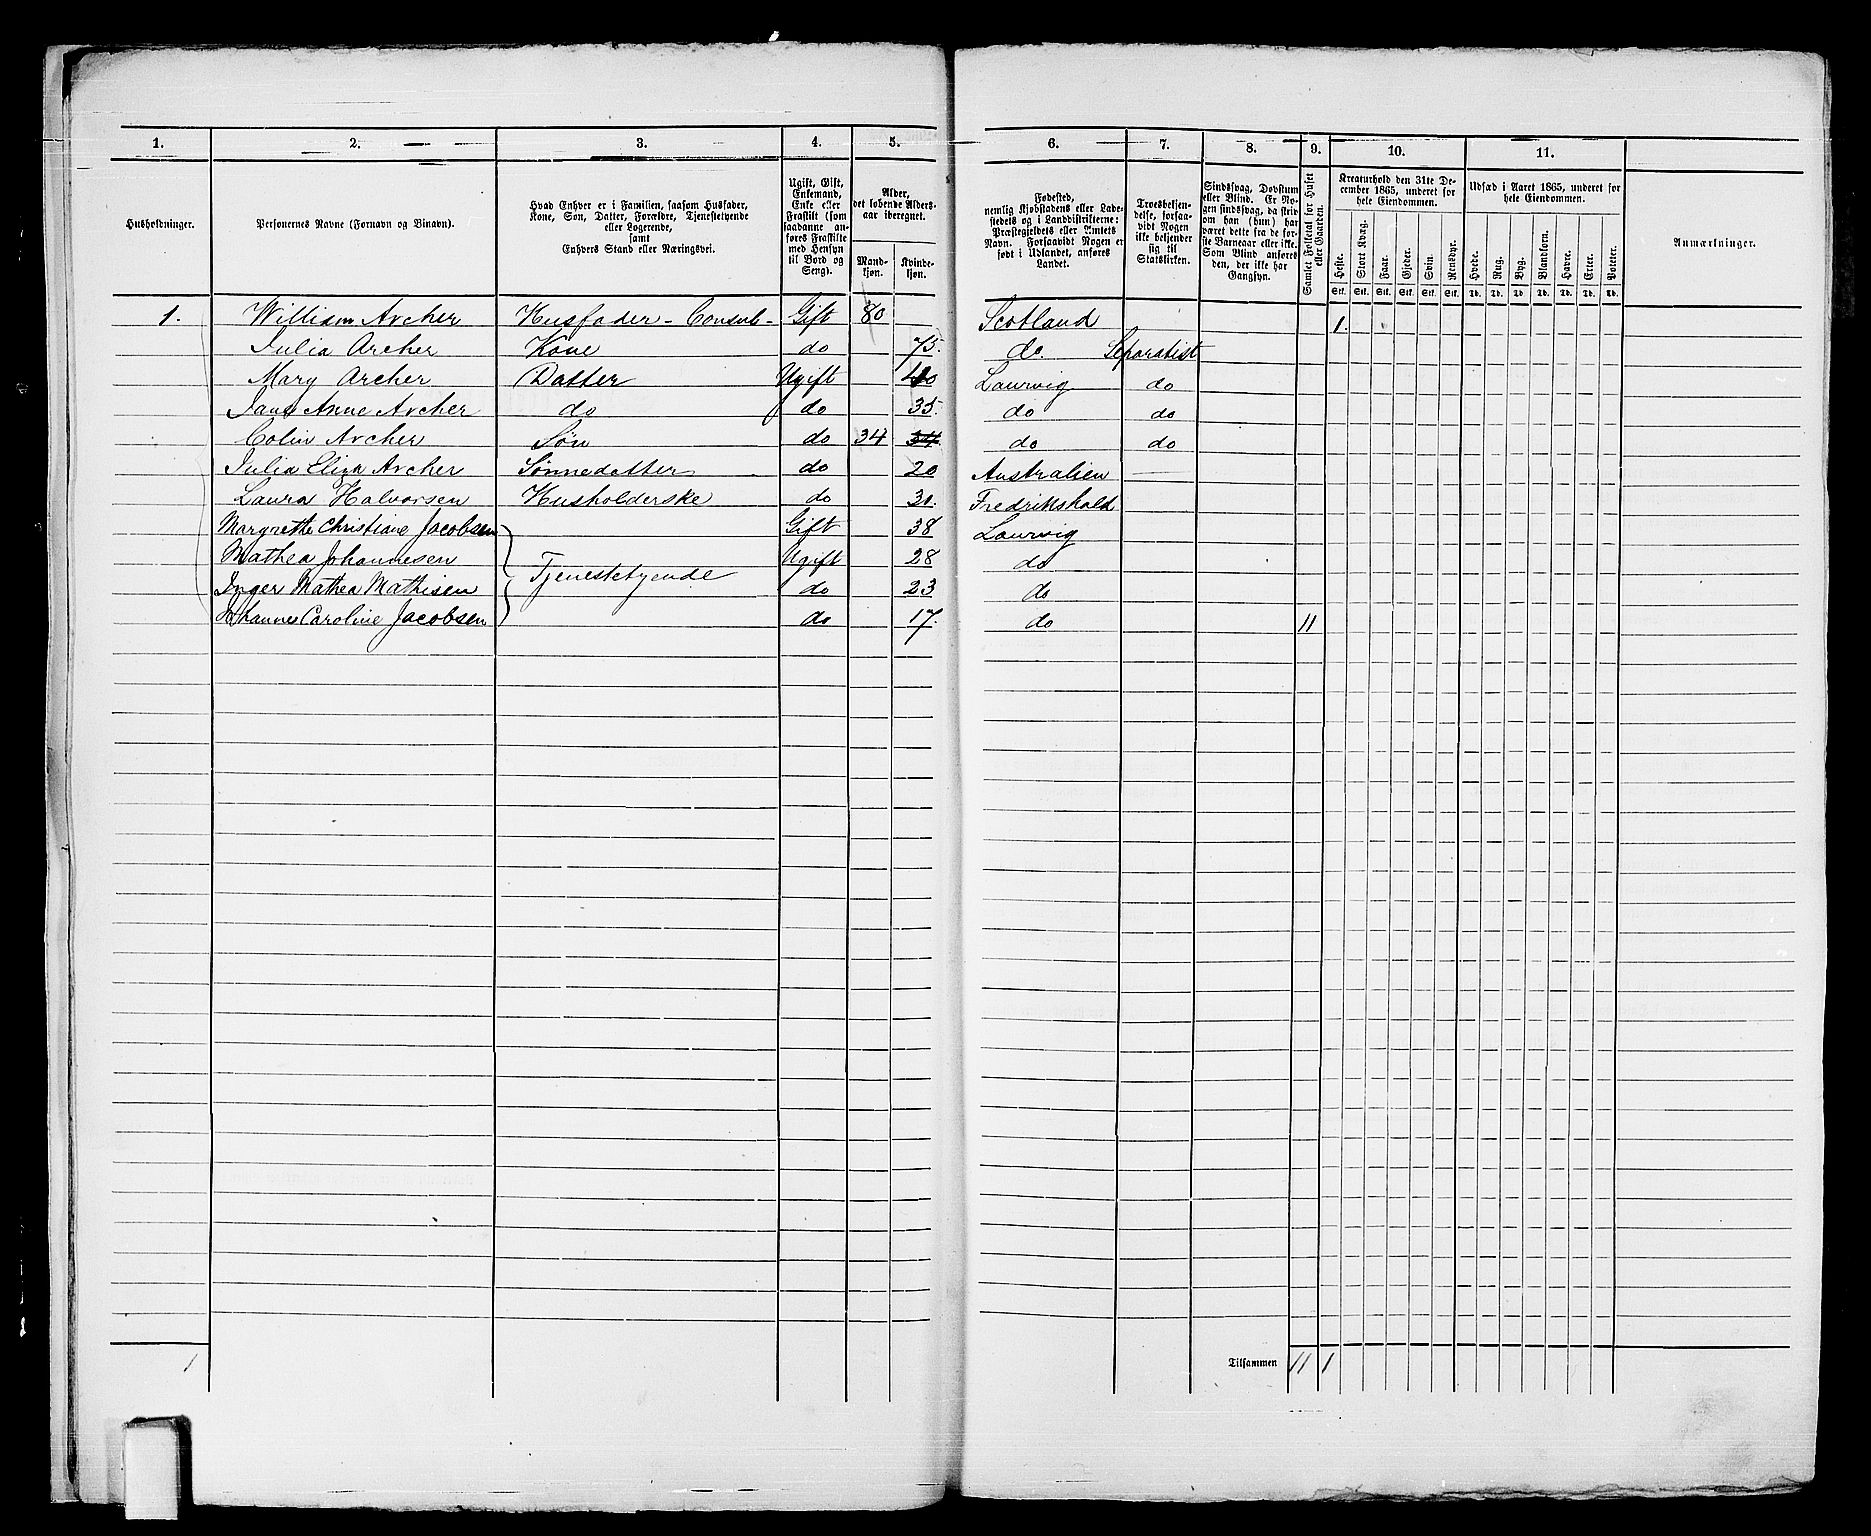 1. 2. 3. 4. 5. 6. 7. 8. 9. 10. 11.
Husholdninger.
Personernes Navne (Fornavn og Binavn).
Hvad Enhver er i Familien, saasom Husfader,
Kone, Søn, Datter, Forældre, Tjenestetyende
eller Logerende,
samt
Enhvers Stand eller Næringsvei.
Ugift, Gift,
Enkemand,
Enke eller
Fraskilt (som
saadanne an-
føres Fraskilte
med Hensyn
til Bord og
Seng).
Alder,
det løbende Alders-
aar iberegnet.
Mand-
kjøn.
Kvinde-
kjøn.
Fødested,
nemlig Kjøbstadens eller Lade-
stedets og i Landdistrikterne:
Præstegjeldets eller Amtets
Navn. Forsaavidt Nogen er
født i Udlandet, anføres
Landet.
Troesbekjen-
delse, forsaa-
vidt Nogen
ikke bekjender
sig til
Statskirken.
Sindssvag, Døvstum
eller Blind. Er No-
gen sindssvag, da skriv
om han (hun) har
været dette fra de før-
ste Barneaar eller ikke.
Som Blind anføres
den, der ikke har
Gangsyn.
Samlet Folketal for Huset
eller Gaarden.
Kreaturhold den 31te De-
cember 1865, underet for
hele Eiendommen.
Heste. Stort Kvæg. Faar. Gjeder. Svin. Rensdyr.
Stk. Stk. Stk. Stk. Stk. Stk.
Udsæd i Aaret 1865, underet for
hele Eiendommen.
Hvede. Rug. Byg. Blandkorn. Havre. Erter. Poteter.
Td. Td. Td. Td. Td. Td. Td.
Anmærkninger.
1. William Archer Husfader - Consul - Gift 80 Scotland 1.
Julia Archer Kone do 75. do. Separatist
Mary Archer Datter Ugift 40 Laurvig do
Jane Anne Archer do do 35. do do
Colin Archer Søn do 34 34 do do
Julia Eliza Archer Sønnedatter do 20 Australien
Laura Halvorsen Husholderske do 31. Fredrikshald
Margrette Christiane Jacobsen Gift 38 Laurvig
Mathea Johannesen Tjenestetyende Ugift 28 do
Inger Mathea Mathisen do 23 do
Johanne Caroline Jacobsen do 17. do 11
1 Tilsammen 11 1